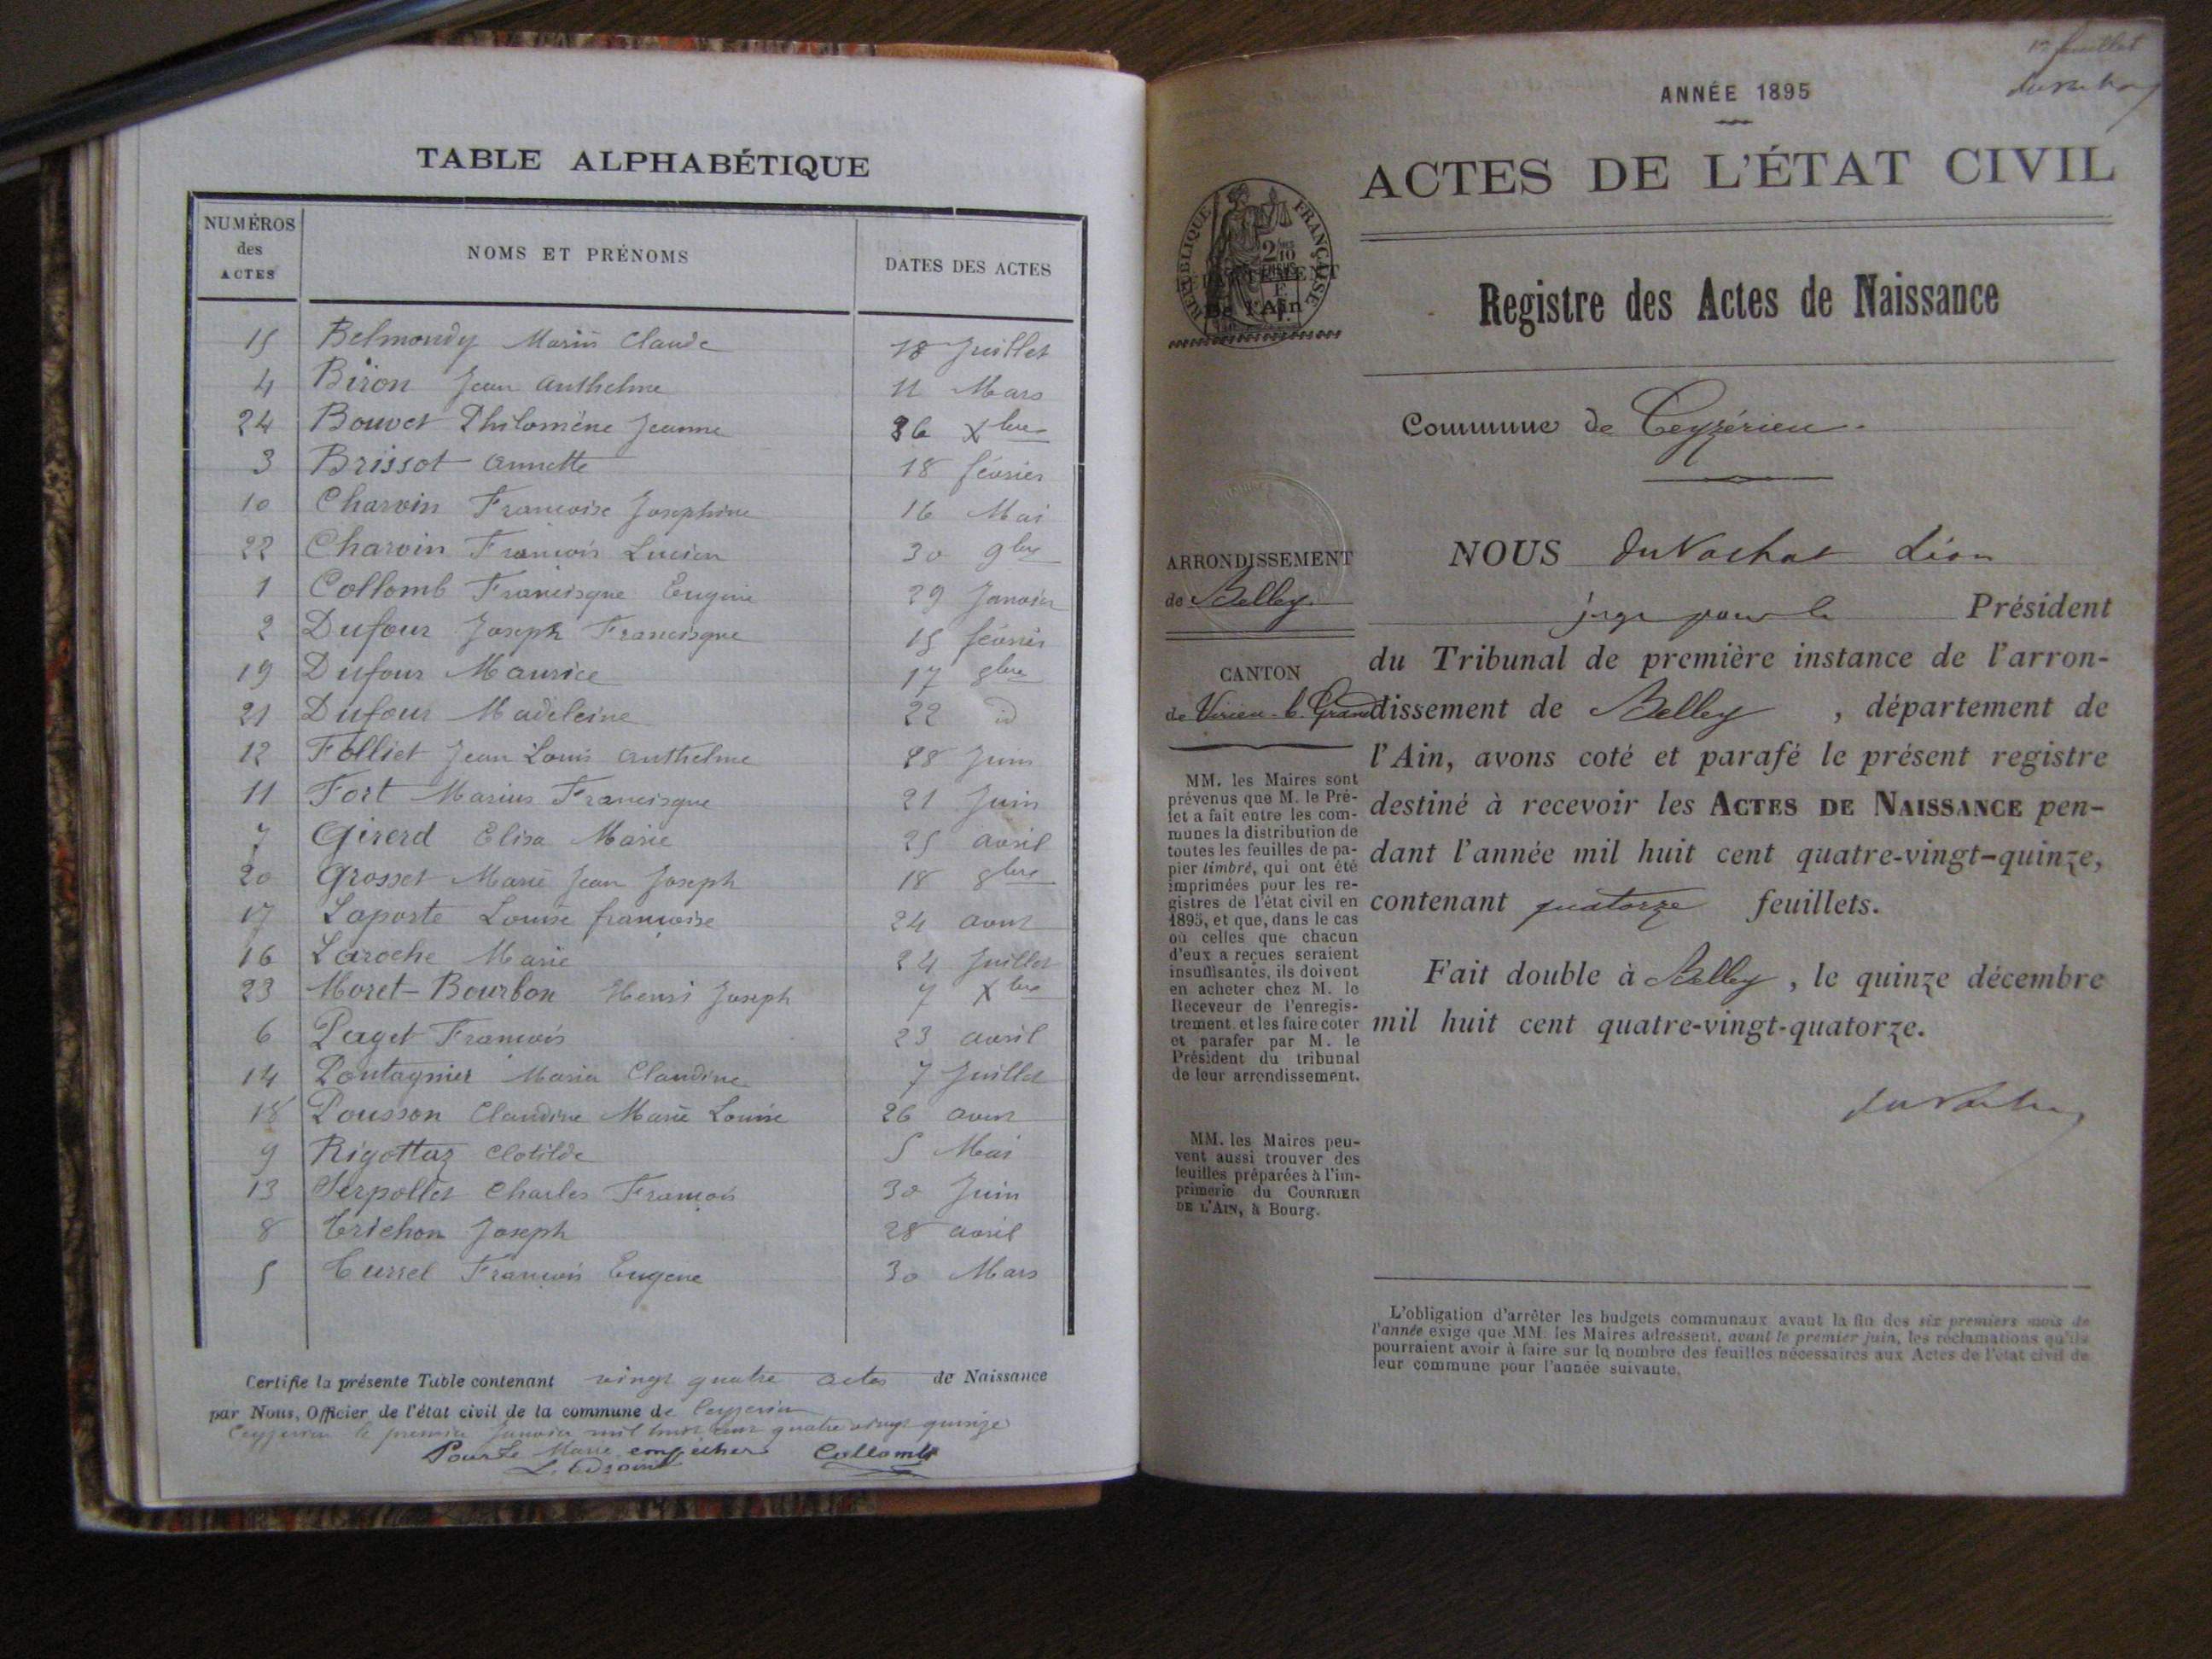 TABLE ALPHABÉTIQUE
NUMÉROS des ACTES
NOMS ET PRÉNOMS
DATES DES ACTES
15 Belmondy Marie Claude 18 Juillet
4 Biron Jean Anthelme 11 Mars
24 Bouvet Philomène Jeanne 26 Xbre
3 Brissot Annette 18 février
10 Charvin Françoise Josephine 16 Mai
22 Charvin François Lucien 30 9bre
1 Collomb Francisque Eugène 29 Janvier
2 Dufour Joseph Francisque 15 février
19 Dufour Maurice 17 8bre
21 Dufour Madeleine 22 id
12 Folliet Jean Louis Anthelme 28 Juin
11 Fort Marius Francisque 21 Juin
7 Girerd Elisa Marie 25 avril
20 Grosset Marie Jean Joseph 18 8bre
17 Laporte Louise françoise 24 aout
16 Laroche Marie 24 Juillet
23 Moret-Bourbon Henri Joseph 7 Xbre
6 Paget François 23 avril
14 Pontagnier Maria Claudine 7 Juillet
18 Pousson Claudine Marie Louise 26 aout
9 Rigottaz Clotilde 5 Mai
13 Serpollet Charles François 30 Juin
8 Trichon Joseph 28 avril
5 Turrel François Eugene 30 Mars
Certifie la présente Table contenant vingt quatre actes de Naissance
par Nous, Officier de l'état civil de la commune de Ceyzerieu
Ceyzerieu le premier Janvier mil huit cent quatre vingt quinze
Pour le Maire empêché Collomb
ANNÉE 1895
ACTES DE L'ÉTAT CIVIL
RÉPUBLIQUE FRANÇAISE
DÉPARTEMENT
De l'Ain
Registre des Actes de Naissance
Commune de Ceyzérieu
ARRONDISSEMENT
de Belley
CANTON
de Virieu-le-Grand
MM. les Maires sont
prévenus que M. le Pré-
fet a fait entre les com-
munes la distribution de
toutes les feuilles de pa-
pier timbré, qui ont été
imprimées pour les re-
gistres de l'état civil en
1895, et que, dans le cas
où celles que chacun
d'eux a reçues seraient
insuffisantes, ils doivent
en acheter chez M. le
Receveur de l'enregis-
trement, et les faire coter
et parafer par M. le
Président du tribunal
de leur arrondissement.
MM. les Maires peu-
vent aussi trouver des
feuilles préparées à l'im-
primerie du COURRIER
DE L'AIN, à Bourg.
NOUS duVachat Léon
juge pour le Président
du Tribunal de première instance de l'arron-
dissement de Belley, département de
l'Ain, avons coté et parafé le présent registre
destiné à recevoir les ACTES DE NAISSANCE pen-
dant l'année mil huit cent quatre-vingt-quinze,
contenant quatorze feuillets.
Fait double à Belley, le quinze décembre
mil huit cent quatre-vingt-quatorze.
L'obligation d'arrêter les budgets communaux avant la fin des six premiers mois de
l'année exige que MM. les Maires adressent, avant le premier juin, les réclamations qu'ils
pourraient avoir à faire sur le nombre des feuilles nécessaires aux Actes de l'état civil de
leur commune pour l'année suivante.